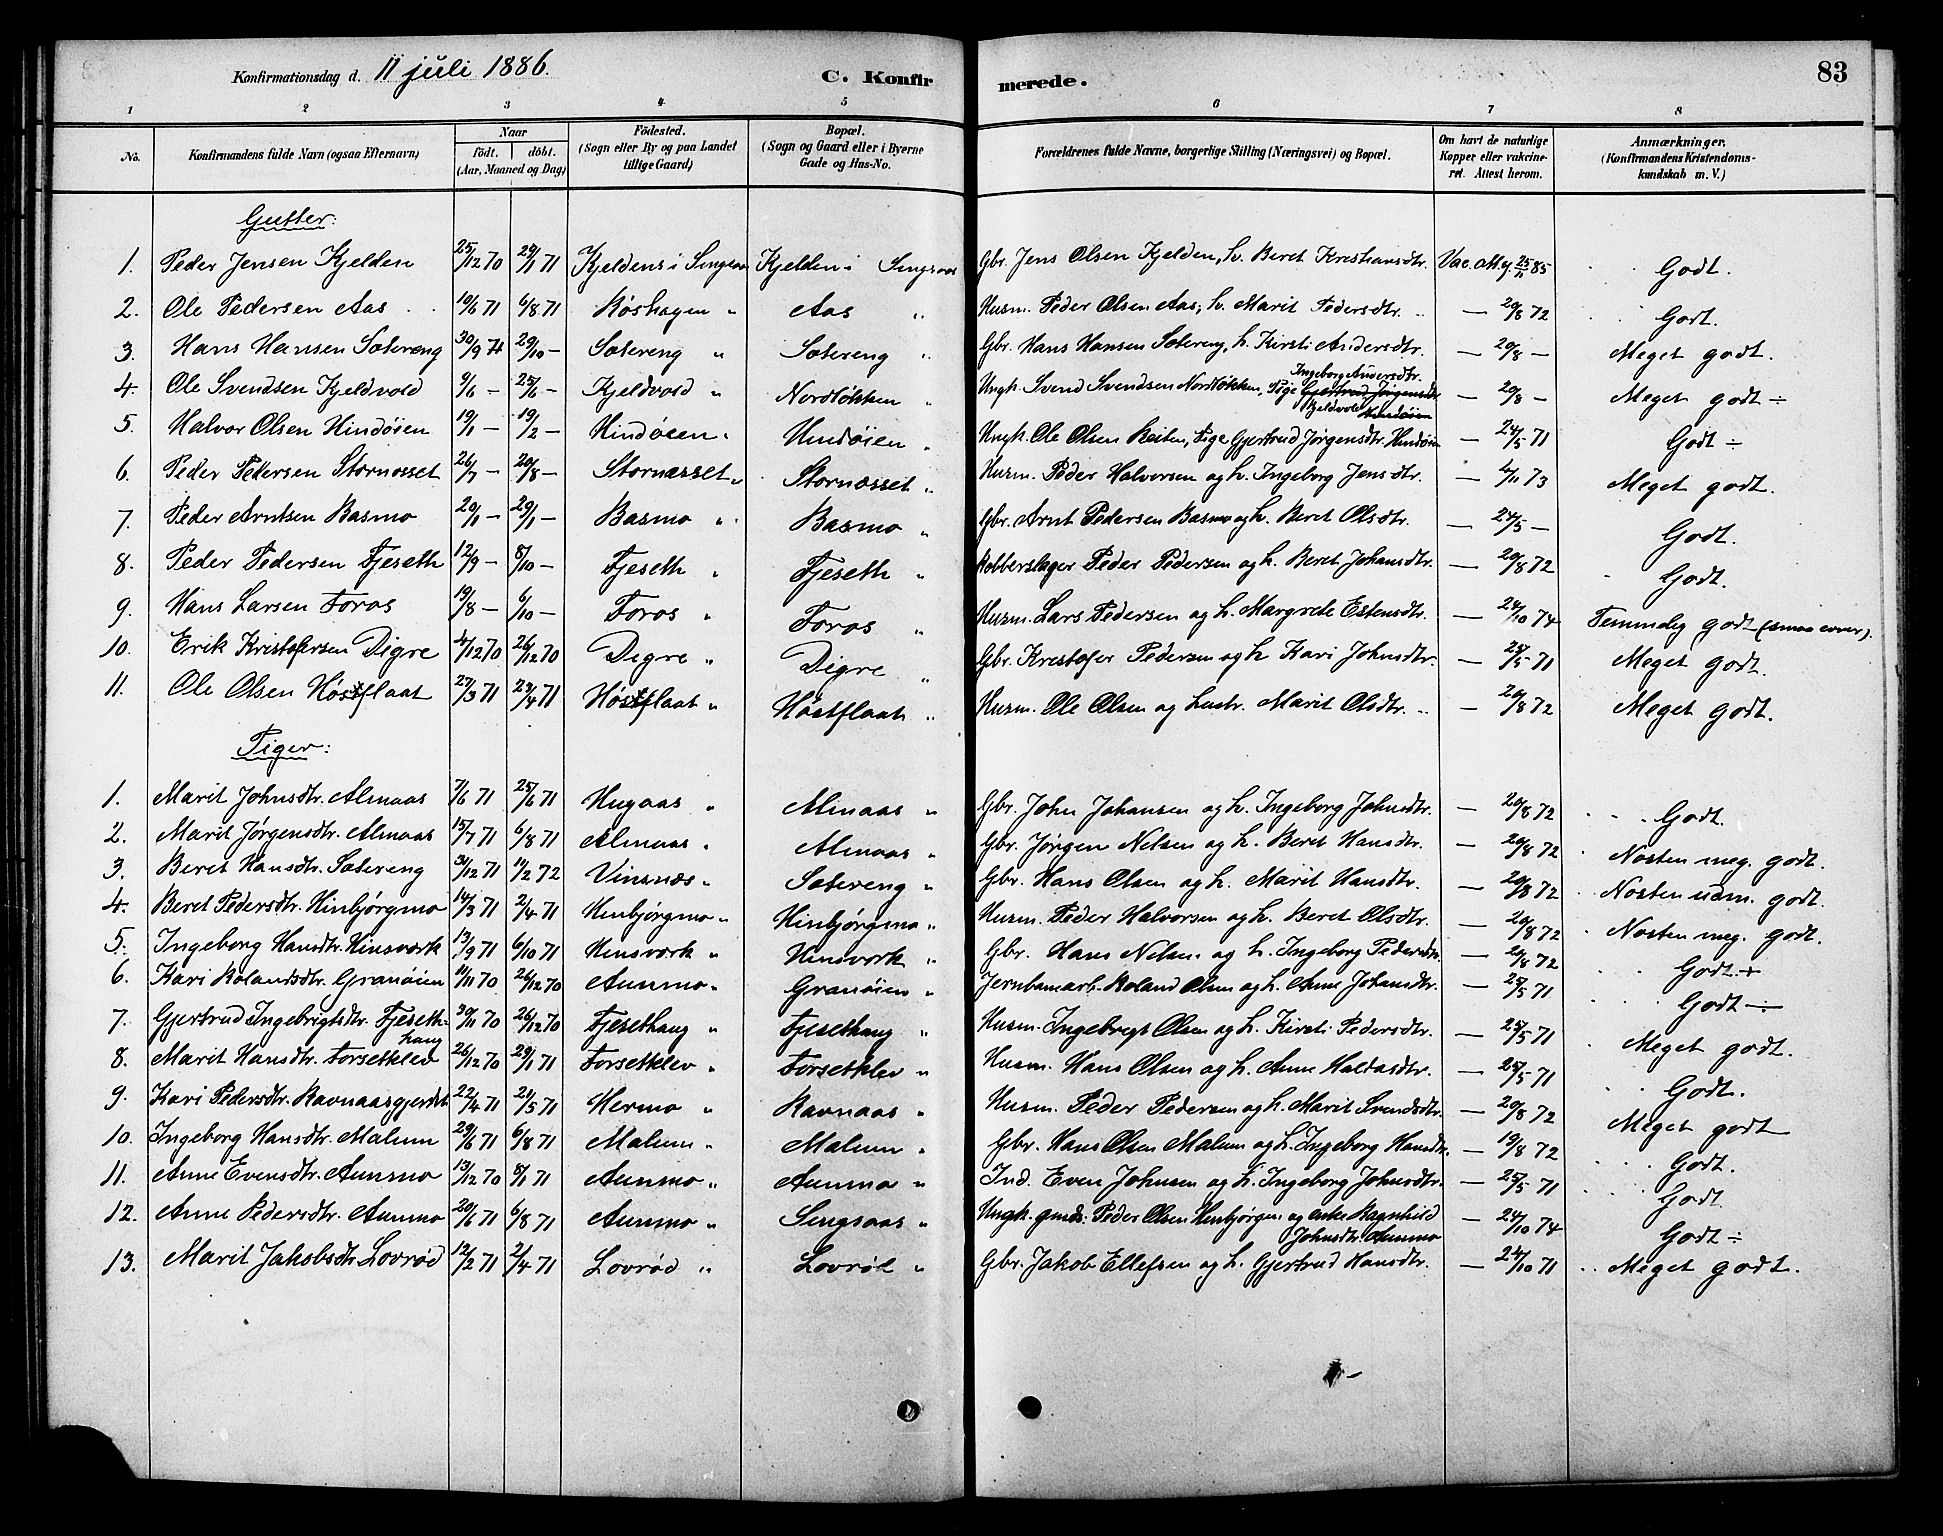 Konfirmationsdag d. 11 juli 1886. C. Konfirmerede. 83
1 2 3 4 5 6 7 8
No. | Konfirmandens fulde Navn (ogsaa Efternavn) | Naar født. døbt. (Aar, Maaned og Dag) | Fødested. (Sogn eller By og paa Landet tillige Gaard) | Bopæl. (Sogn og Gaard eller i Byerne Gade og Hus-No. | Forældrenes fulde Navne, borgerlige Stilling (Næringsvei) og Bopæl. | Om havt de naturlige Kopper eller vakcineret. Attest herom. | Anmærkninger. (Konfirmandens Kristendomskundskab m. V.)
Gutter:
1. Peder Jensen Kjelden 25/12 70 29/1 71 Kjeldens i Singsaas Kjelden i Singsaas Gbr. Jens Olsen Kjelden, h. Beret Kristiansdtr. Vac. 25/11 85 Godt.
2. Ole Pedersen Aas 19/6 71 6/8 71 Røshagen " Aas " Husm. Peder Olsen Aas, h. Marit Pedersdtr. — 20/8 72 Godt.
3. Hans Hansen Sætereng 30/9 71 29/10 — Sætereng " Sætereng " Gbr. Hans Hansen Sætereng, h. Kirsti Andersdtr. — 20/8 — Meget godt.
4. Ole Svendsen Kjeldvold 9/6 — 25/6 — Kjeldvold " Nordløkken " Ungk. Svend Svendsen Nordløkken, Pige Gjertrud Jørgensdtr Hindøien Ingeborg Andersdtr. Kjeldvold — 20/8 — Meget godt ÷
5. Halvor Olsen Hindøien 19/1 — 19/2 — Hindøien " Hindøien " Ungk. Ole Olsen Reiten, Pige Gjertrud Jørgensdtr. Hindøien — 24/5 71 Godt ÷
6. Peder Pedersen Stornæsset 26/7 — 20/8 — Stornæsset " Stornæsset " Husm. Peder Halvorsen og h. Ingeborg Jensdtr. — 4/11 73 Meget godt.
7. Peder Arntsen Basmo 20/1 — 29/1 — Basmo " Basmo " Gbr. Arnt Pedersen Basmo og h. Beret Olsdtr. — 24/5 — Godt.
8. Peder Pedersen Fjeseth 12/9 — 8/10 — Fjeseth " Fjeseth " Kobberslager Peder Pedersen og h. Beret Johansdtr. — 20/8 72 Godt.
9. Hans Larsen Foros 19/8 — 6/10 — Foros " Foros " Husm. Lars Pedersen og h. Margrete Estensdtr. — 24/10 74 Temmelig godt
10. Erik Kristofersen Digre 4/12 70 26/12 70 Digre " Digre " Gbr. Kristofer Pedersen og h. Kari Johnsdtr. — 25/5 71 Meget godt.
11. Ole Olsen Høstflaat 27/3 71 23/4 71 Høstflaat " Høstflaat " Husm. Ole Olsen og hustr. Marit Olsdtr. — 20/8 72 Meget godt.
Piger:
1. Marit Johnsdtr. Almaas 7/6 71 25/6 71 Hugaas " Almaas " Gbr. John Johansen og h. Ingeborg Johnsdtr. — 20/8 72 Godt.
2. Marit Jørgensdtr. Almaas 15/7 71 6/8 71 Almaas " Almaas " Gbr. Jørgen Nilsen og h. Beret Hansdtr. — 20/8 72 Næsten meg. godt.
3. Beret Hansdtr. Sætereng 31/12 71 11/2 72 Vinsnes " Sætereng " Gbr. Hans Olsen og h. Marit Hansdtr. — 20/8 72 Næsten udm. godt.
4. Beret Pedersdtr. Hinbjørgmo 14/3 71 2/4 71 Hinbjørgmo " Hinbjørgmo " Husm. Peder Halvorsen og h. Beret Olsdtr. — 20/8 72 Næsten meg. godt.
5. Ingeborg Hansdtr. Hinsverk 13/9 71 6/10 71 Hinsverk " Hinsverk " Gbr. Hans Nilsen og h. Ingeborg Pedersdtr. — 20/8 72 Godt +
6. Kari Rolandsdtr. Granøien 11/11 70 26/12 70 Aunmo " Granøien " Jernbanearb. Roland Olsen og h. Anne Johansdtr. — 25/5 71 Godt ÷
7. Gjertrud Ingebrigtsdtr. Fjesethhaug 30/11 70 26/12 70 Fjesethaug " Fjesethaug " Husm. Ingebrigt Olsen og h. Kirsti Pedersdtr. — 25/5 71 Meget godt.
8. Marit Hansdtr. Forsetklev 26/12 70 29/1 71 Forsetklev " Forsetklev " Husm. Hans Olsen og h. Anne Haldosdtr. — 25/5 71 Godt.
9. Kari Pedersdtr. Ravnaasgjerdet 22/4 71 21/5 71 Hermo " Ravnaas " Husm. Peder Pedersen og h. Marit Svendsdtr. — 20/8 72 Meget godt
10. Ingeborg Hansdtr. Malum 29/6 71 6/8 71 Malum " Malum " Gbr. Hans Olsen Malum og h. Ingeborg Hansdtr. — 19/8 72 Godt.
11. Anne Evensdtr. Aunmo 13/12 70 8/1 71 Aunmo " Aunmo " Ind. Even Johnsen og h. Ingeborg Johnsdtr. — 25/5 71 Godt
12. Anne Pedersdtr. Aunmo 20/6 71 6/8 71 Aunmo " Singsaas " Ungk. gmds. Peder Olsen Hinbjørgen og enke Ragnhild Johnsdtr. Aunmo — 24/10 74 Godt ÷
13. Marit Jakobsdtr. Lovrød 12/2 71 2/4 71 Lovrød " Lovrød " Gbr. Jakob Ellefsen og h. Gjertrud Hansdtr. — 24/10 71 Meget godt.